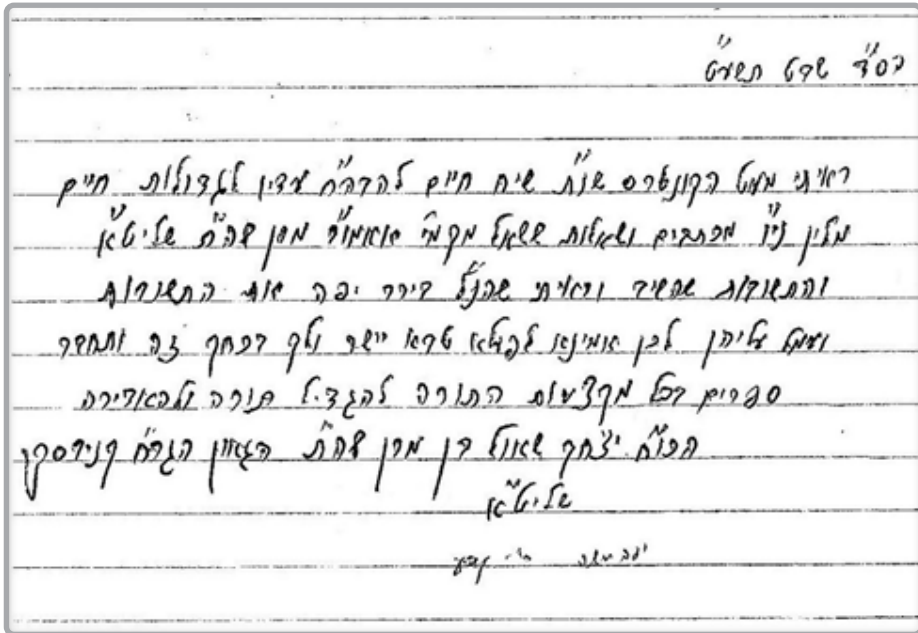 בס"ד שבט תשע"ט
ראיתי מעט הקונטרס שו"ת שיח חיים להבה"ח עדין לגדולות חיים
מלין ני"ו מכתבים ושאלות ששאל מקמי אאמו"ר מרן שה"ת שליט"א
והתשובות שהשיב וראיתי שהנ"ל בירר יפה את התשובות
ועמל עליהן לכן אמינא לפעלא טבא יישר ולך בכחך זה ותחבר
ספרים בכל מקצעות התורה להגדיל תורה ולהאדירה
הכו"ח יצחק שאול בן מרן שה"ת הגאון הגר"ח קניבסקי
שליט"א